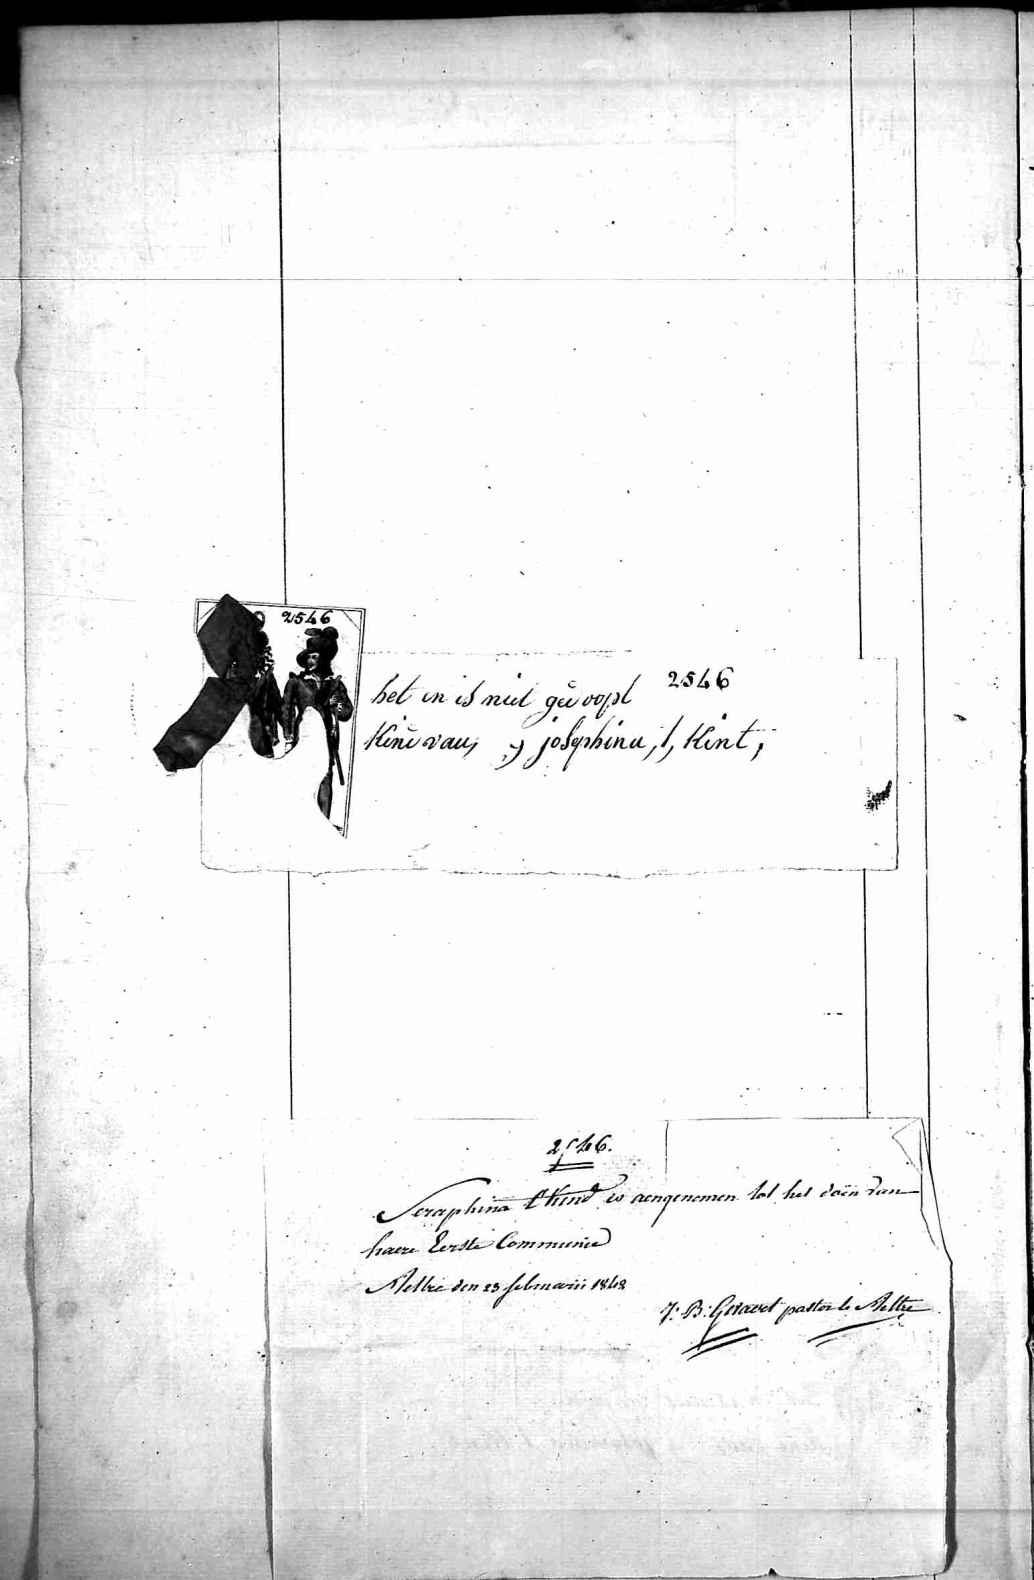 2546
2546
het en is niet geëvoopt
Kint van, y josephina, t, Kint,
2546.
Seraphina t'Kind is aengenomen tot het doën van
haere Eerste Communie
Aeltre den 23 februarii 1848
J: B: Govaert pastor te Aeltre